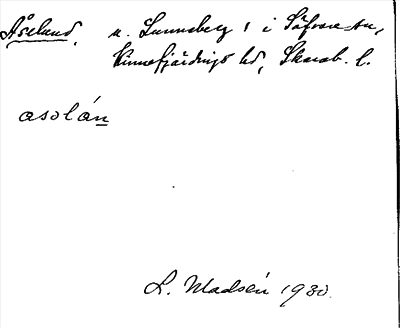 Åseland, u. Lunneberg 1 i Säfvare sn,
Kinnefjärdings hd, Skarab. l.
asolán
L. Madsén 1930.